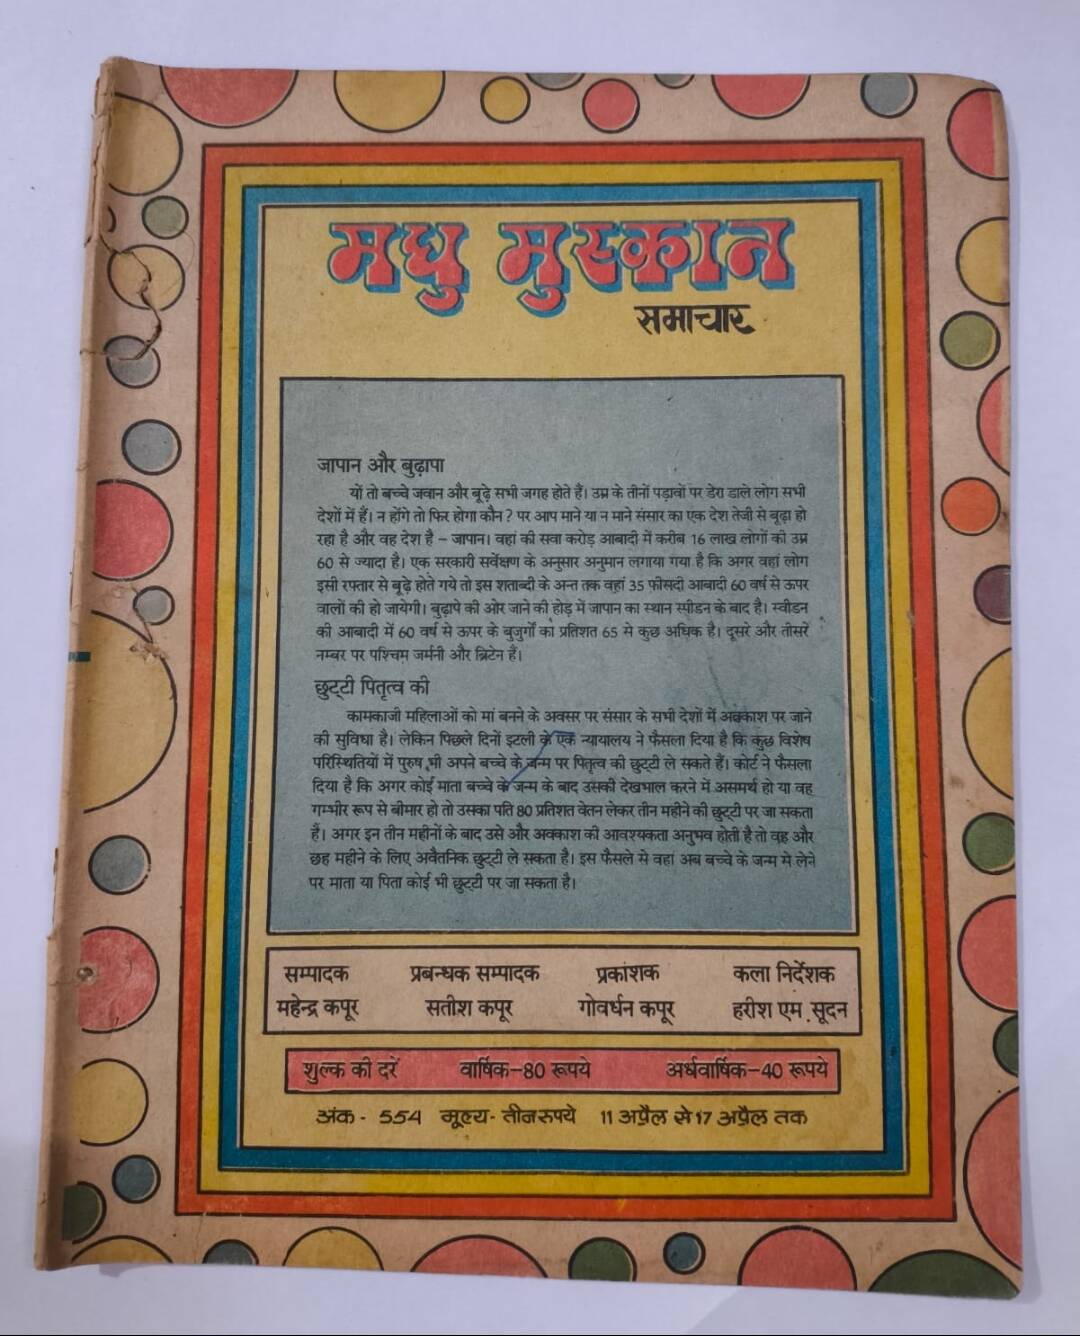 मधु मुस्कान
समाचार
जापान और बुढ़ापा
यों तो बच्चे जवान और बूढ़े सभी जगह होते हैं। उम्र के तीनों पड़ावों पर डेरा डाले लोग सभी
देशों में हैं। न होंगे तो फिर होगा कौन? पर आप माने या न माने संसार का एक देश तेजी से बूढ़ा हो
रहा है और वह देश है – जापान। वहां की सवा करोड़ आबादी में करीब 16 लाख लोगों की उम्र
60 से ज्यादा है। एक सरकारी सर्वेक्षण के अनुसार अनुमान लगाया गया है कि अगर वहां लोग
इसी रफ्तार से बूढ़े होते गये तो इस शताब्दी के अन्त तक वहां 35 फीसदी आबादी 60 वर्ष से ऊपर
वालों की हो जायेगी। बुढ़ापे की ओर जाने की होड़ में जापान का स्थान स्पीडन के बाद है। स्वीडन
की आबादी में 60 वर्ष से ऊपर के बुजुर्गों का प्रतिशत 65 से कुछ अधिक है। दूसरे और तीसरे
नम्बर पर पश्चिम जर्मनी और ब्रिटेन हैं।
छुट्टी पितृत्व की
कामकाजी महिलाओं को मां बनने के अवसर पर संसार के सभी देशों में अवकाश पर जाने
की सुविधा है। लेकिन पिछले दिनों इटली के एक न्यायालय ने फैसला दिया है कि कुछ विशेष
परिस्थितियों में पुरुष भी अपने बच्चे के जन्म पर पितृत्व की छुट्टी ले सकते हैं। कोर्ट ने फैसला
दिया है कि अगर कोई माता बच्चे के जन्म के बाद उसकी देखभाल करने में असमर्थ हो या वह
गम्भीर रूप से बीमार हो तो उसका पति 80 प्रतिशत वेतन लेकर तीन महीने की छुट्टी पर जा सकता
हैं। अगर इन तीन महीनों के बाद उसे और अवकाश की आवश्यकता अनुभव होती है तो वह और
छह महीने के लिए अवैतनिक छुट्टी ले सकता है। इस फैसले से वहां अब बच्चे के जन्म से लेने
पर माता या पिता कोई भी छुट्टी पर जा सकता है।
सम्पादक प्रबन्धक सम्पादक प्रकाशक कला निर्देशक
महेन्द्र कपूर सतीश कपूर गोवर्धन कपूर हरीश एम. सूदन
शुल्क की दरें वार्षिक–80 रूपये अर्धवार्षिक–40 रूपये
अंक - 554 मूल्य- तीन रुपये 11 अप्रैल से 17 अप्रैल तक